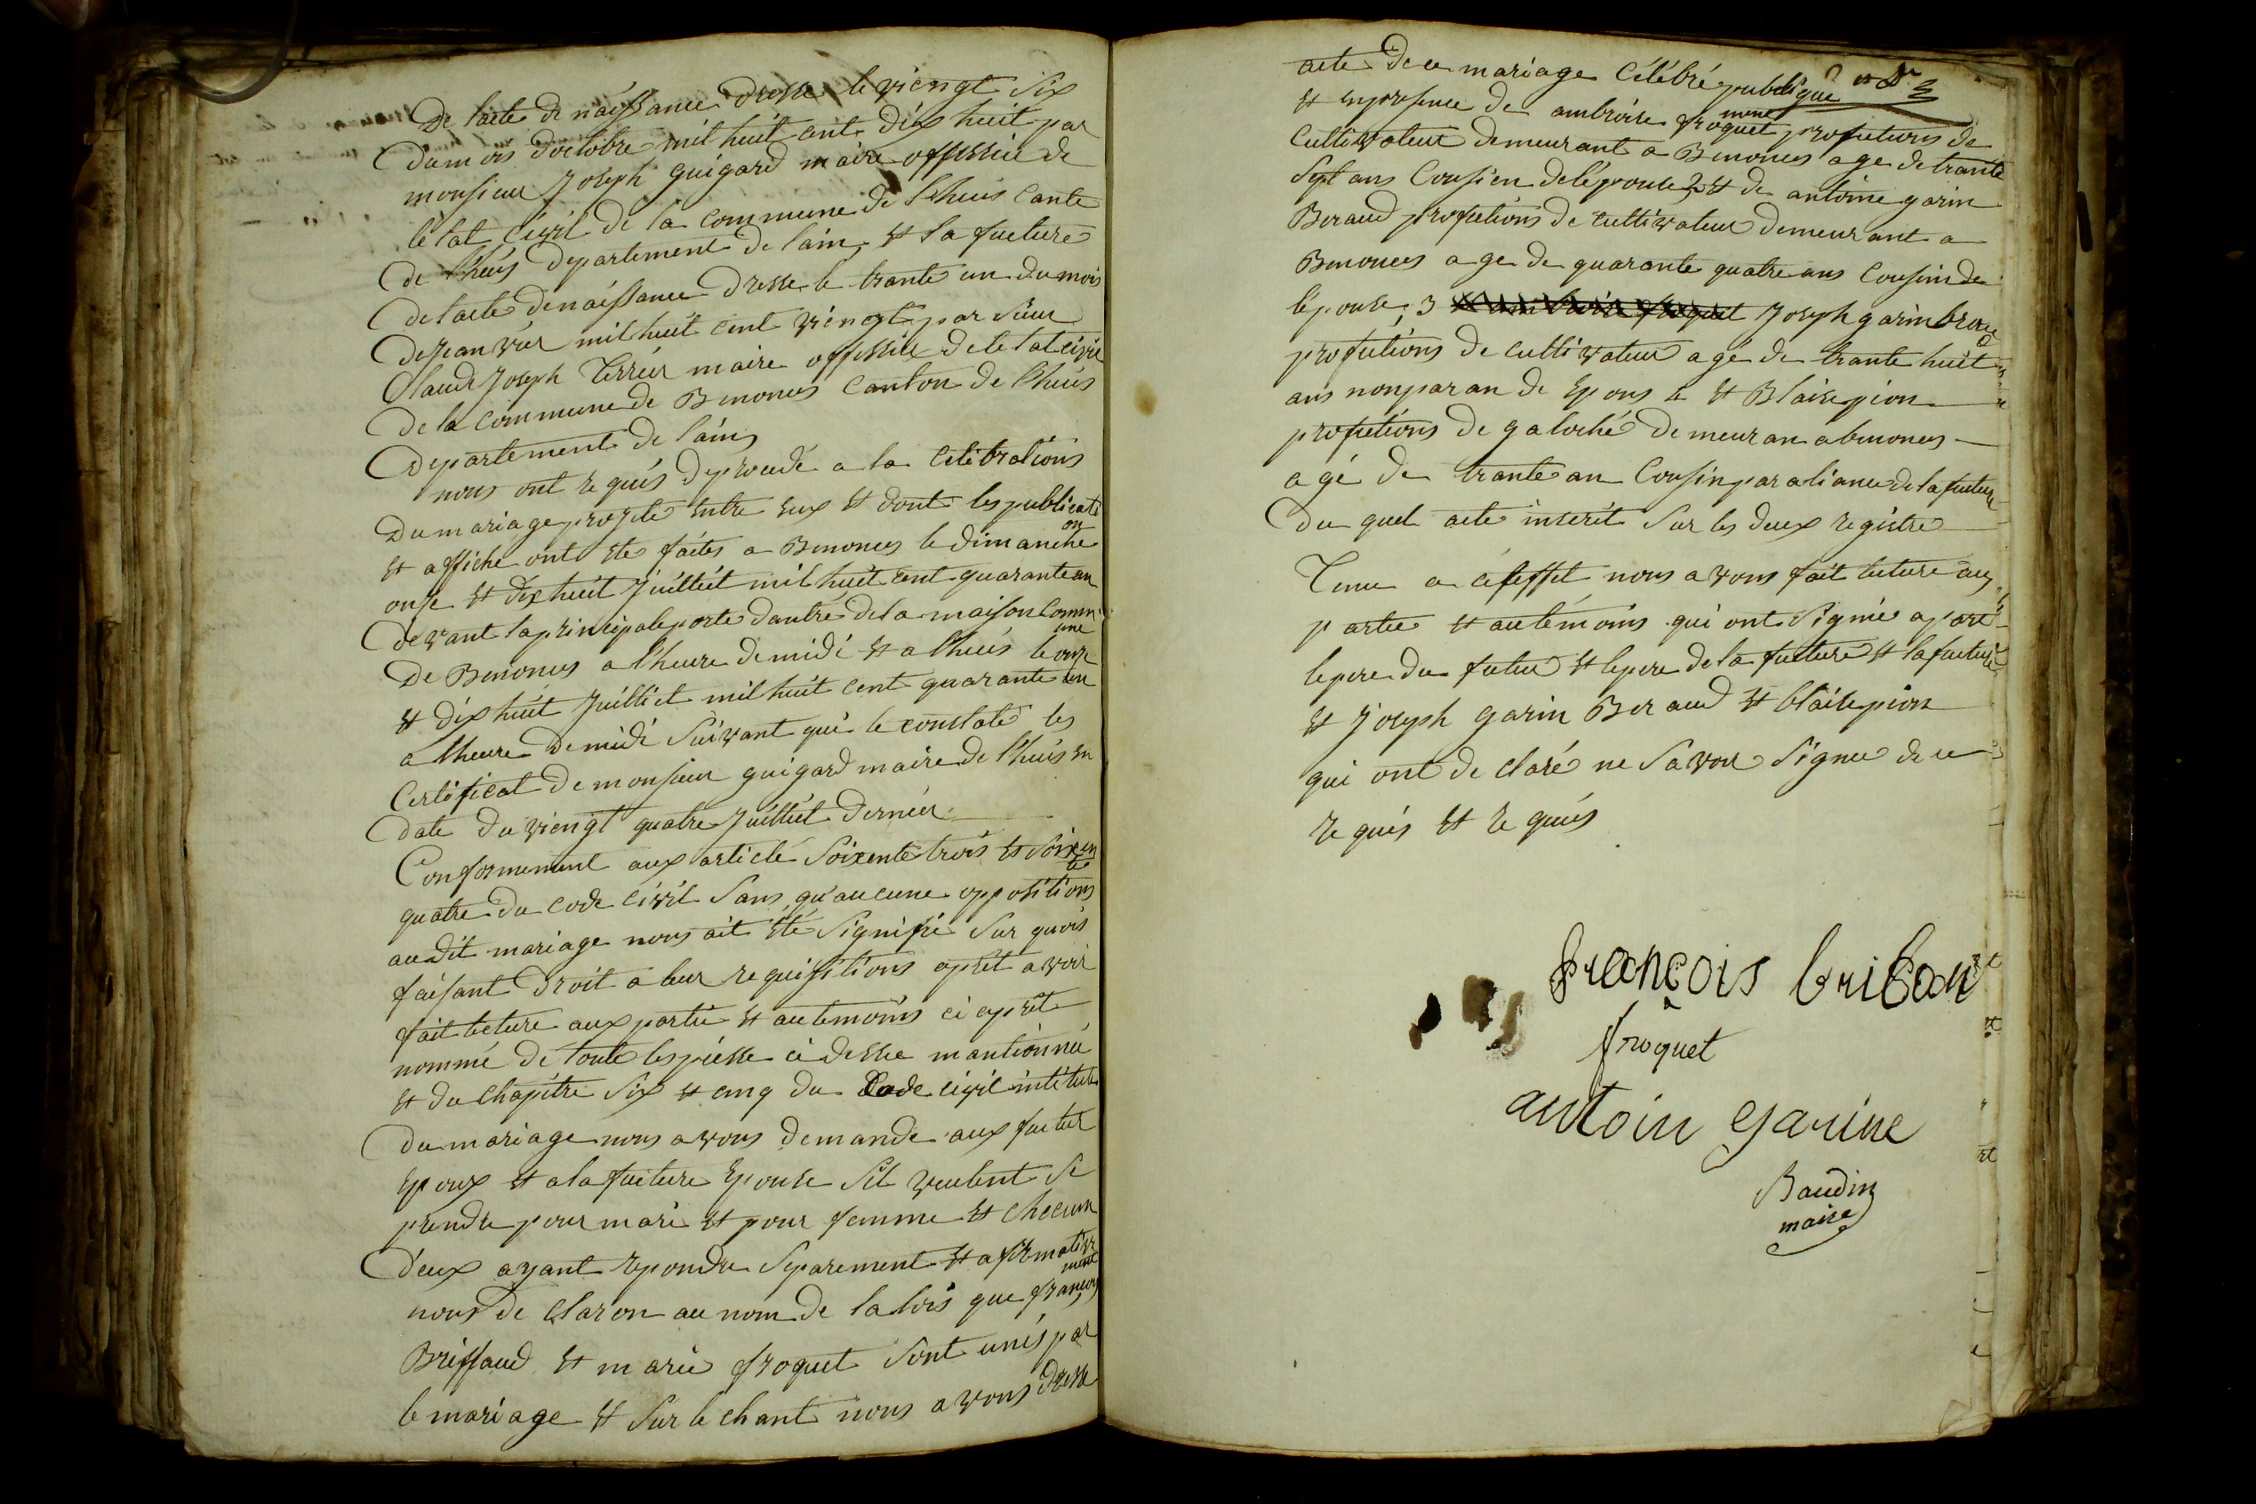 De lacte de náissance dresse le viengt Six
du mois doctobre mil huit cent dix huit par
monsieur Joseph guigard maire offissié de
létat civil de la commune de lhuis cante
de lhuis departement de lain, et la fueture
de lacte de náissance dresse le trante un du mois
de Jeanviér mil huit cent viengt par Sieur
Claude Joseph maire offissié de létat civil
de la commune de Benonces canton de lhuis
departement de lain,
nous ont requis deproudé a la célébrations
du mariage progeté entre eux et dont les publicati
on
et affiche ont été faites a Benonces le dimanche
onse et dix huit Juilliét mil huit cent quarante un
devant la principale porte dantré de la maison comm
une
de Benonces a lheure de midi et a lhuis le onze
et dix huit Juilliet mil huit cent quarante un
a lheure de midi suivant qui le constate les
certificat de monsieur guigard maire de lhuis en
date du viengt quatre Juilliét derniér
Conformement aux articlé Soixente trois et Soixen
te
quatre du code civil Sans qu'aucune oppositions
audit mariage nous ait été Signifié Sur quois
faisant droit a leur requisitions aprêt avoir
fait lecture aux partié et autemoins ci aprêt
nommé de toute les piésse ci dessue mantionnée
et du chapitre Six et cinq du Code civil intitulé
du mariage nous avons demande aux fuetur
Epoux et a la fueture Epouse Sil veulent Se
prendre pour mari et pour femme et checun
deux ayant repondu Séparement et afirmative
ment
nous de claron au nom de la lois que françois
Briffaud et marie froquet Sont unis par
le mariage et Sur le chant nous avons dresse
acte de ce mariage célébré publique
ment
et enpresence de ambroise froquet profutions de
cultivateur demeurant a Benonces age de trante
Sept ans Cousien de lépouse 2 et de antoine garin
Beraud profutions de cultivateur demeurant a
Benonces age de quarante quatre ans cousin de
lépouse, 3 Joseph garin
profutions de cultivateur agé de trante huit
ans nonparan de Epouse et Blaise pion
profutions de galoché demeuran a benonces
agé de trante an Cousin par aliance de la fueture
du quel acte inscrit Sur les deux registre
Tenu a céteffet nous avons fait lecture aux
partie et autémoins qui ont Signié apart
le pere du futur et le pere de la fueture et la fueture
et Joseph garin Beraud et blaise pion
qui ont de claré ne Savoir Signer de ce
requis et requis
françois brifan
froquet
antoin garine
Baudin
maire